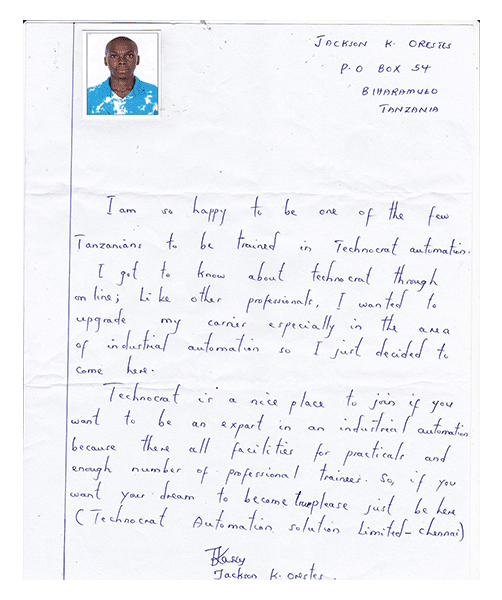 JACKSON K. ORESTES
P.O BOX 54
BIHARAMULO
TANZANIA
I am so happy to be one of the few
Tanzanians to be trained in Technocrat automation.
I got to know about technocrat through
on line; Like other professionals, I wanted to
upgrade my carrier especially in the area
of industrial automation so I just decided to
come here.
Technocrat is a nice place to join if you
want to be an expart in an industrial automation
because there all facilities for practicals and
enough number of professional trainees. So, if you
want your dream to become true please just be here
(Technocrat Automation solution Limited - chennai)
Jackson K. Orestes.